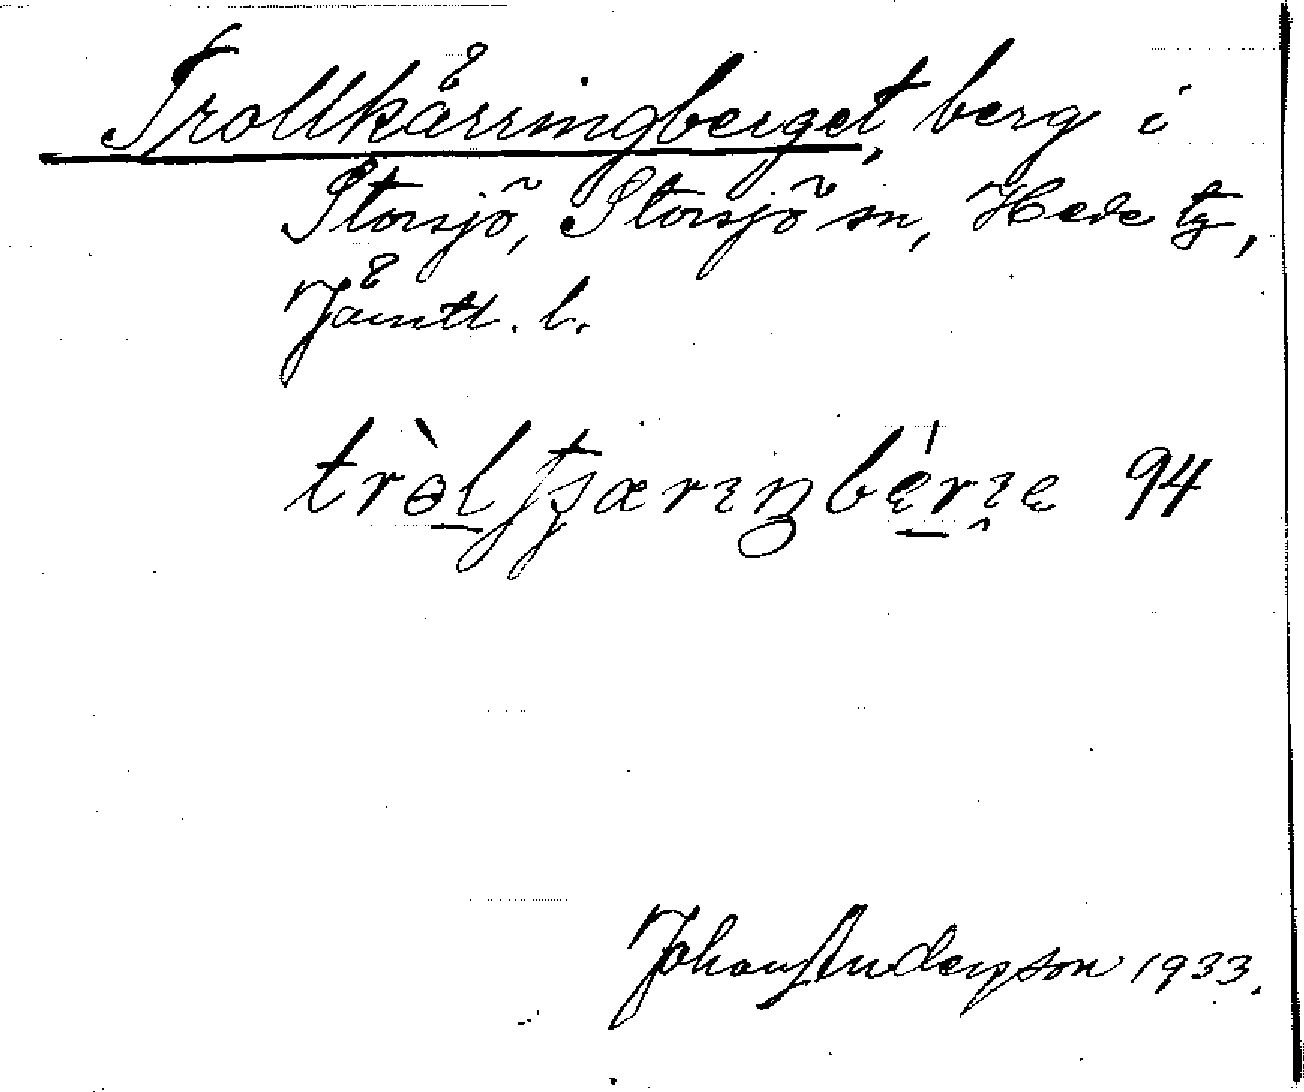 Trollkärringberget, berg i
Storsjö, Storsjö sn, Hede tg,
Jämtl. l.
94
Johan Anderson 1933.